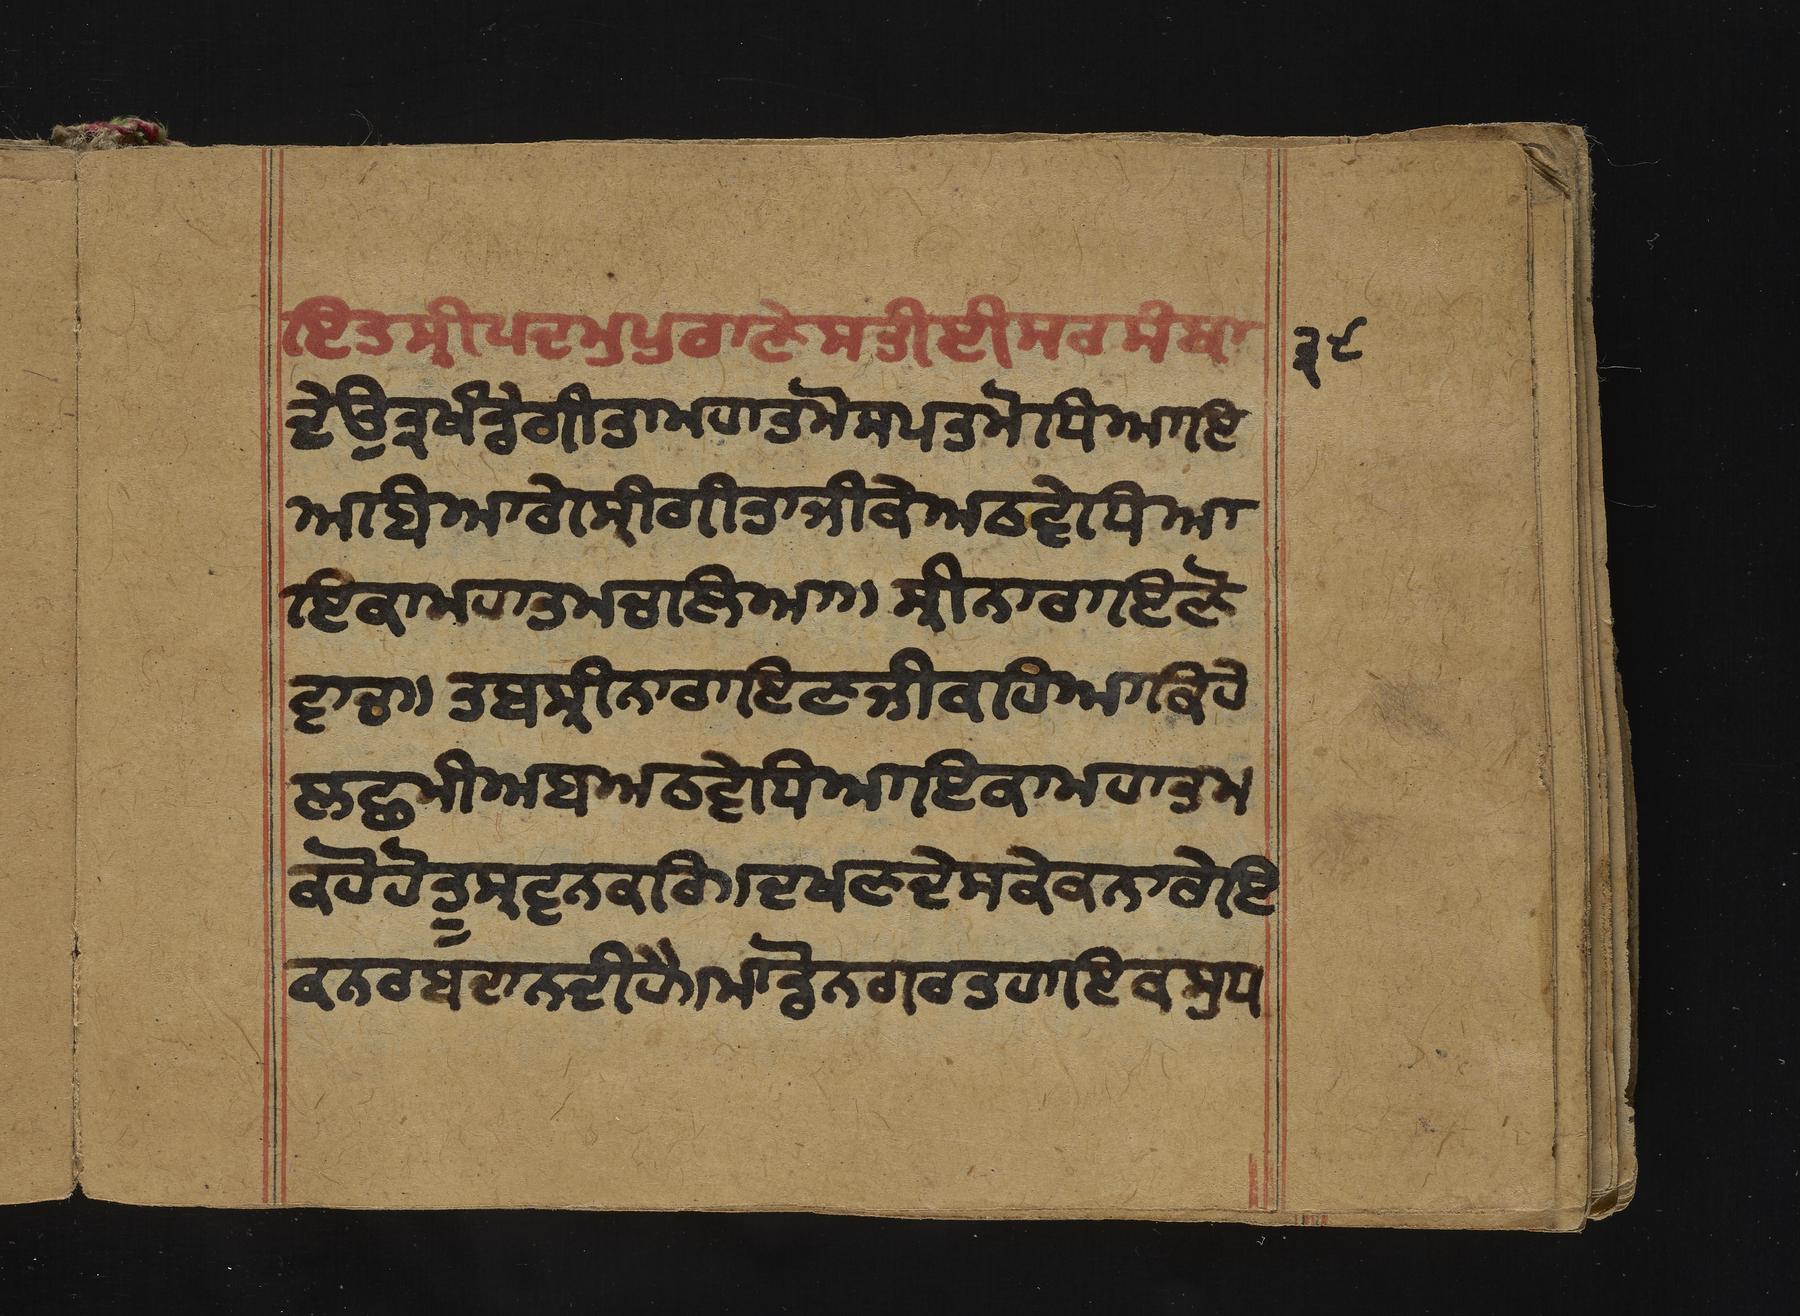 ਇਤਸ੍ਰੀਪਦਮੁਪੁਰਾਣੇਸਤੀਈਸਰਸੰਬਾ ੩੯
ਦੇਉਤ੍ਰਖੰਡੇਗੀਤਾਮਹਾਤਮੋਸਪਤਮੋਧਿਆਇ
ਆਬਿਆਰੇਸ੍ਰੀਗੀਤਾਜੀਕੇਅਠਵੇਧਿਆ
ਇਕਾਮਹਾਤਮਚਲਿਆ॥ ਸ੍ਰੀਨਾਰਾਇਣੋ
ਵਾਚ॥ ਤਬਸ੍ਰੀਨਾਰਾਇਣਜੀਕਹਿਆਕਿਹੇ
ਲਛਮੀਅਬਅਠਵੇਧਿਆਇਕਾਮਹਾਤਮ
ਕਹੋਹੋਤੂਸ੍ਰਵਨਕਰਿ॥ਦਖਣਦੇਸਕੇਕਨਾਰੇਇ
ਕਨਰਬਦਾਨਦੀਹੈ॥ਮਾਡੋਨਗਰਤਹਾਇਕਸੁਧ